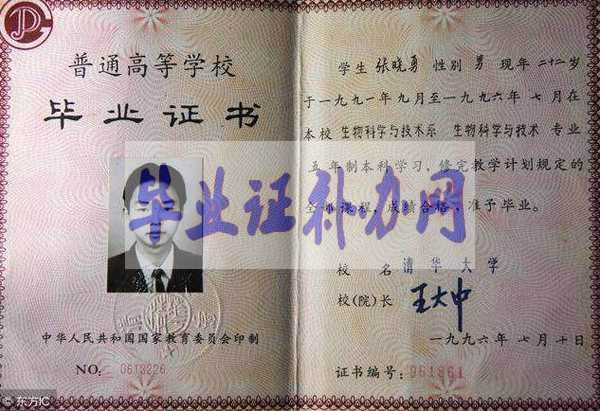 普通高等学校
毕业证书
中华人民共和国国家教育委员会印制
NO: 0613226
学生 张晓勇 性别 男 现年二十二岁
于一九九一年九月至一九九六年七月在
本校 生物科学与技术系 生物科学与技术 专业
五年制本科学习，修完教学计划规定的
全部课程，成绩合格，准予毕业。
校名 清华大学
校(院)长 王大中
一九九六年七月十日
证书编号: 961861
毕业证补办网
© 东方IC